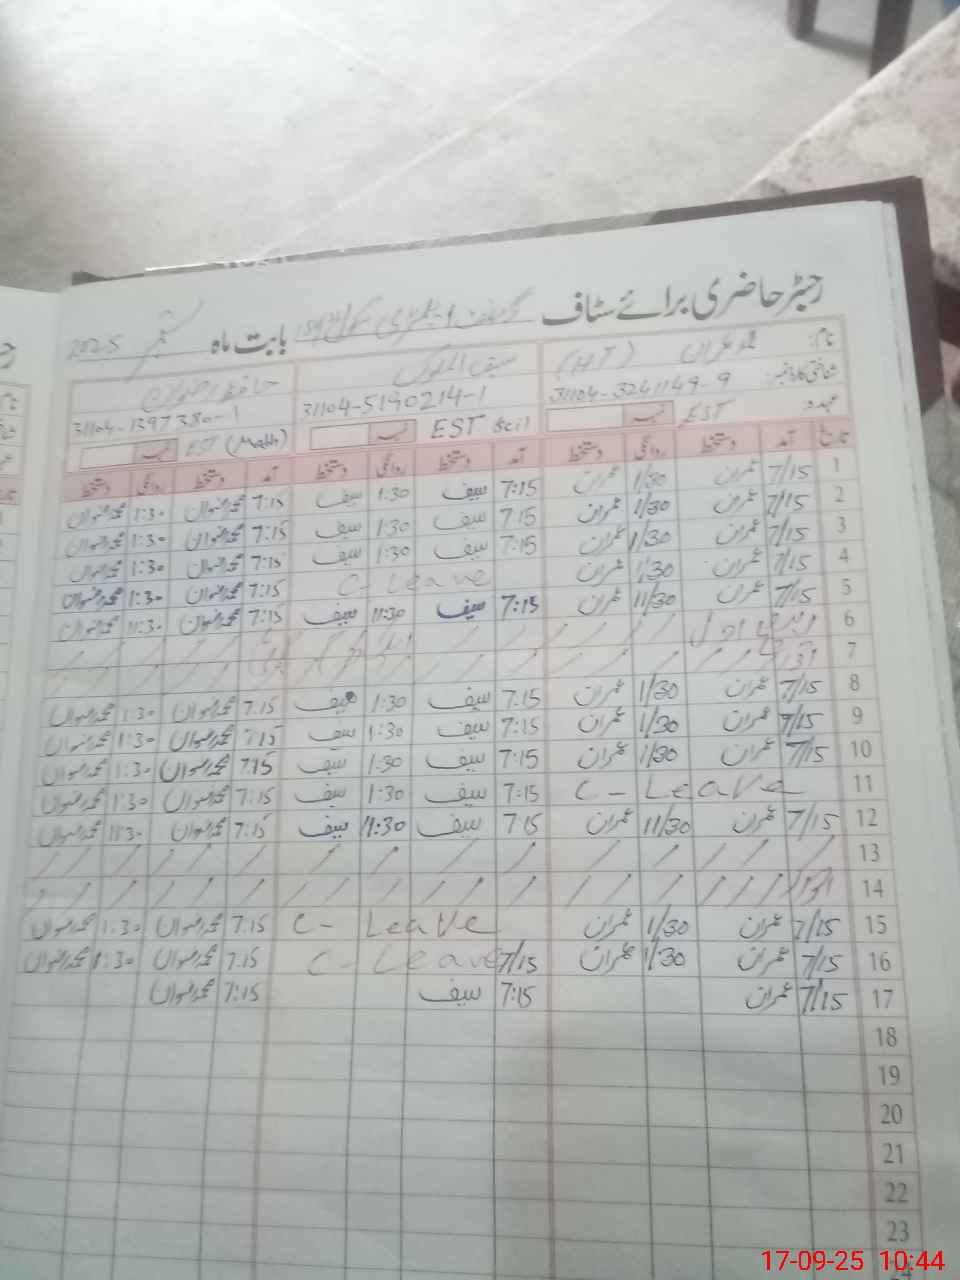 رجسٹر حاضری برائے سٹاف گورنمنٹ سکول بابت ماہ ستمبر 2025
نام: محمد عمران (HT) سیف الملوک حافظ رضوان
شناختی کارڈ نمبر: 31104-3241149-9 31104-5190214-1 31104-1397380-1
عہدہ: EST EST (Sci) EST (Math)
تاریخ آمد دستخط روانگی دستخط آمد دستخط روانگی دستخط آمد دستخط روانگی دستخط
1 7/15 عمران 1/30 عمران 7:15 سیف 1:30 سیف 7:15 محمد رضوان 1:30 محمد رضوان
2 7/15 عمران 1/30 عمران 7:15 سیف 1:30 سیف 7:15 محمد رضوان 1:30 محمد رضوان
3 7/15 عمران 1/30 عمران 7:15 سیف 1:30 سیف 7:15 محمد رضوان 1:30 محمد رضوان
4 7/15 عمران 1/30 عمران C- Leave 7:15 محمد رضوان 1:30 محمد رضوان
5 7/15 عمران 11/30 عمران 7:15 سیف 11:30 سیف 7:15 محمد رضوان 11:30 محمد رضوان
6 ربیع الاول
7 اتوار
8 7/15 عمران 1/30 عمران 7:15 سیف 1:30 سیف 7:15 محمد رضوان 1:30 محمد رضوان
9 7/15 عمران 1/30 عمران 7:15 سیف 1:30 سیف 7:15 محمد رضوان 1:30 محمد رضوان
10 7/15 عمران 1/30 عمران 7:15 سیف 1:30 سیف 7:15 محمد رضوان 1:30 محمد رضوان
11 C- Leave 7:15 سیف 1:30 سیف 7:15 محمد رضوان 1:30 محمد رضوان
12 7/15 عمران 11/30 عمران 7:15 سیف 11:30 سیف 7:15 محمد رضوان 11:30 محمد رضوان
13
14 اتوار
15 7/15 عمران 1/30 عمران C- Leave 7:15 محمد رضوان 1:30 محمد رضوان
16 7/15 عمران 1/30 عمران 7/15 C- Leave 7:15 محمد رضوان 1:30 محمد رضوان
17 7/15 عمران 7:15 سیف 7:15 محمد رضوان
18
19
20
21
22
23
24
17-09-25 10:44